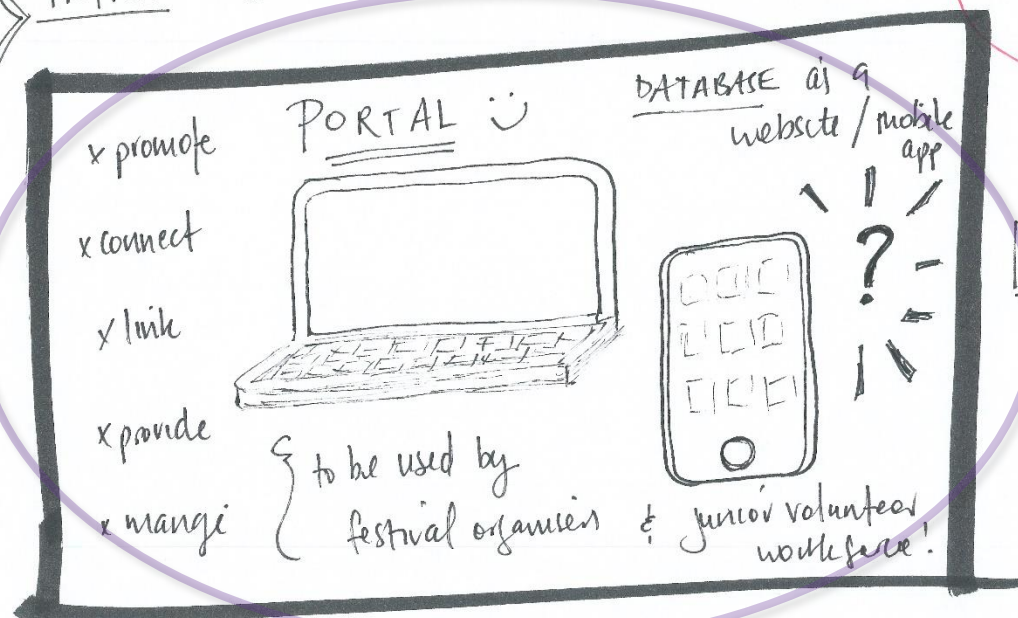 PORTAL
DATABASE as a
website / mobile
app
x promote
x connect
x link
x provide
x mange
?
to be used by
festival organisers & junior volunteer
workforce!